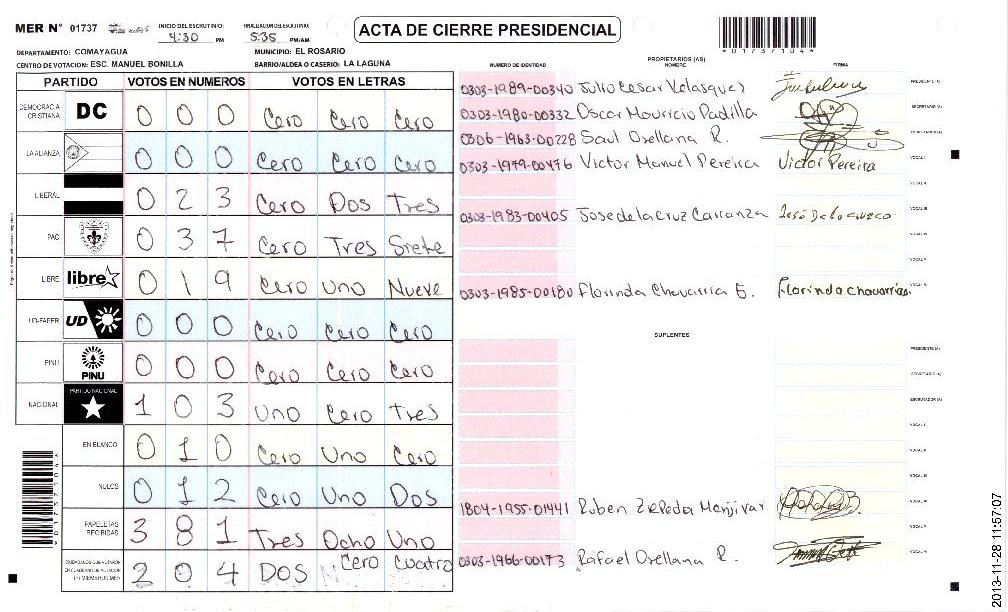 MER N° 01737 INICIO DEL ESCRUTINIO: 4:30 PM FINALIZACION DEL ESCRUTINIO: 5:35 PM/AM
ACTA DE CIERRE PRESIDENCIAL
*01737104*
DEPARTAMENTO: COMAYAGUA MUNICIPIO: EL ROSARIO
CENTRO DE VOTACION: ESC. MANUEL BONILLA BARRIO/ALDEA O CASERIO: LA LAGUNA
PARTIDO VOTOS EN NUMEROS VOTOS EN LETRAS
DEMOCRACIA CRISTIANA DC 0 0 0 Cero Cero Cero
LA ALIANZA 0 0 0 Cero Cero Cero
LIBERAL 0 2 3 Cero Dos Tres
PAC 0 3 7 Cero Tres Siete
LIBRE libre 0 1 9 Cero Uno Nueve
UD-FAPER UD 0 0 0 Cero Cero Cero
PINU PINU 0 0 0 Cero Cero Cero
NACIONAL PARTIDO NACIONAL 1 0 3 Uno Cero Tres
EN BLANCO 0 1 0 Cero Uno Cero
NULOS 0 1 2 Cero Uno Dos
PAPELETAS RECIBIDAS 3 8 1 Tres Ocho Uno
2 0 4 Dos Cero Cuatro
PROPIETARIOS (AS)
NUMERO DE IDENTIDAD NOMBRE FIRMA
0303-1989-00340 Julio Cesar Velasquez PRESIDENTE (A)
0303-1980-00332 Oscar Mauricio Padilla SECRETARIO (A)
0306-1963-00228 Saul Orellana R. ESCRUTADOR (A)
0303-1979-00476 Victor Manuel Pereira Victor Pereira VOCAL I
VOCAL II
0303-1983-00405 Jose de la Cruz Carranza VOCAL III
VOCAL IV
VOCAL V
0303-1985-00180 Florinda Chavarria E. Florinda Chavarrias VOCAL VI
SUPLENTES
PRESIDENTE (A)
SECRETARIO (A)
ESCRUTADOR (A)
VOCAL I
VOCAL II
VOCAL III
1804-1955-01441 Ruben Zepeda Menjivar VOCAL IV
VOCAL V
0303-1966-00173 Rafael Orellana R. VOCAL VI
2013-11-28 11:57:07